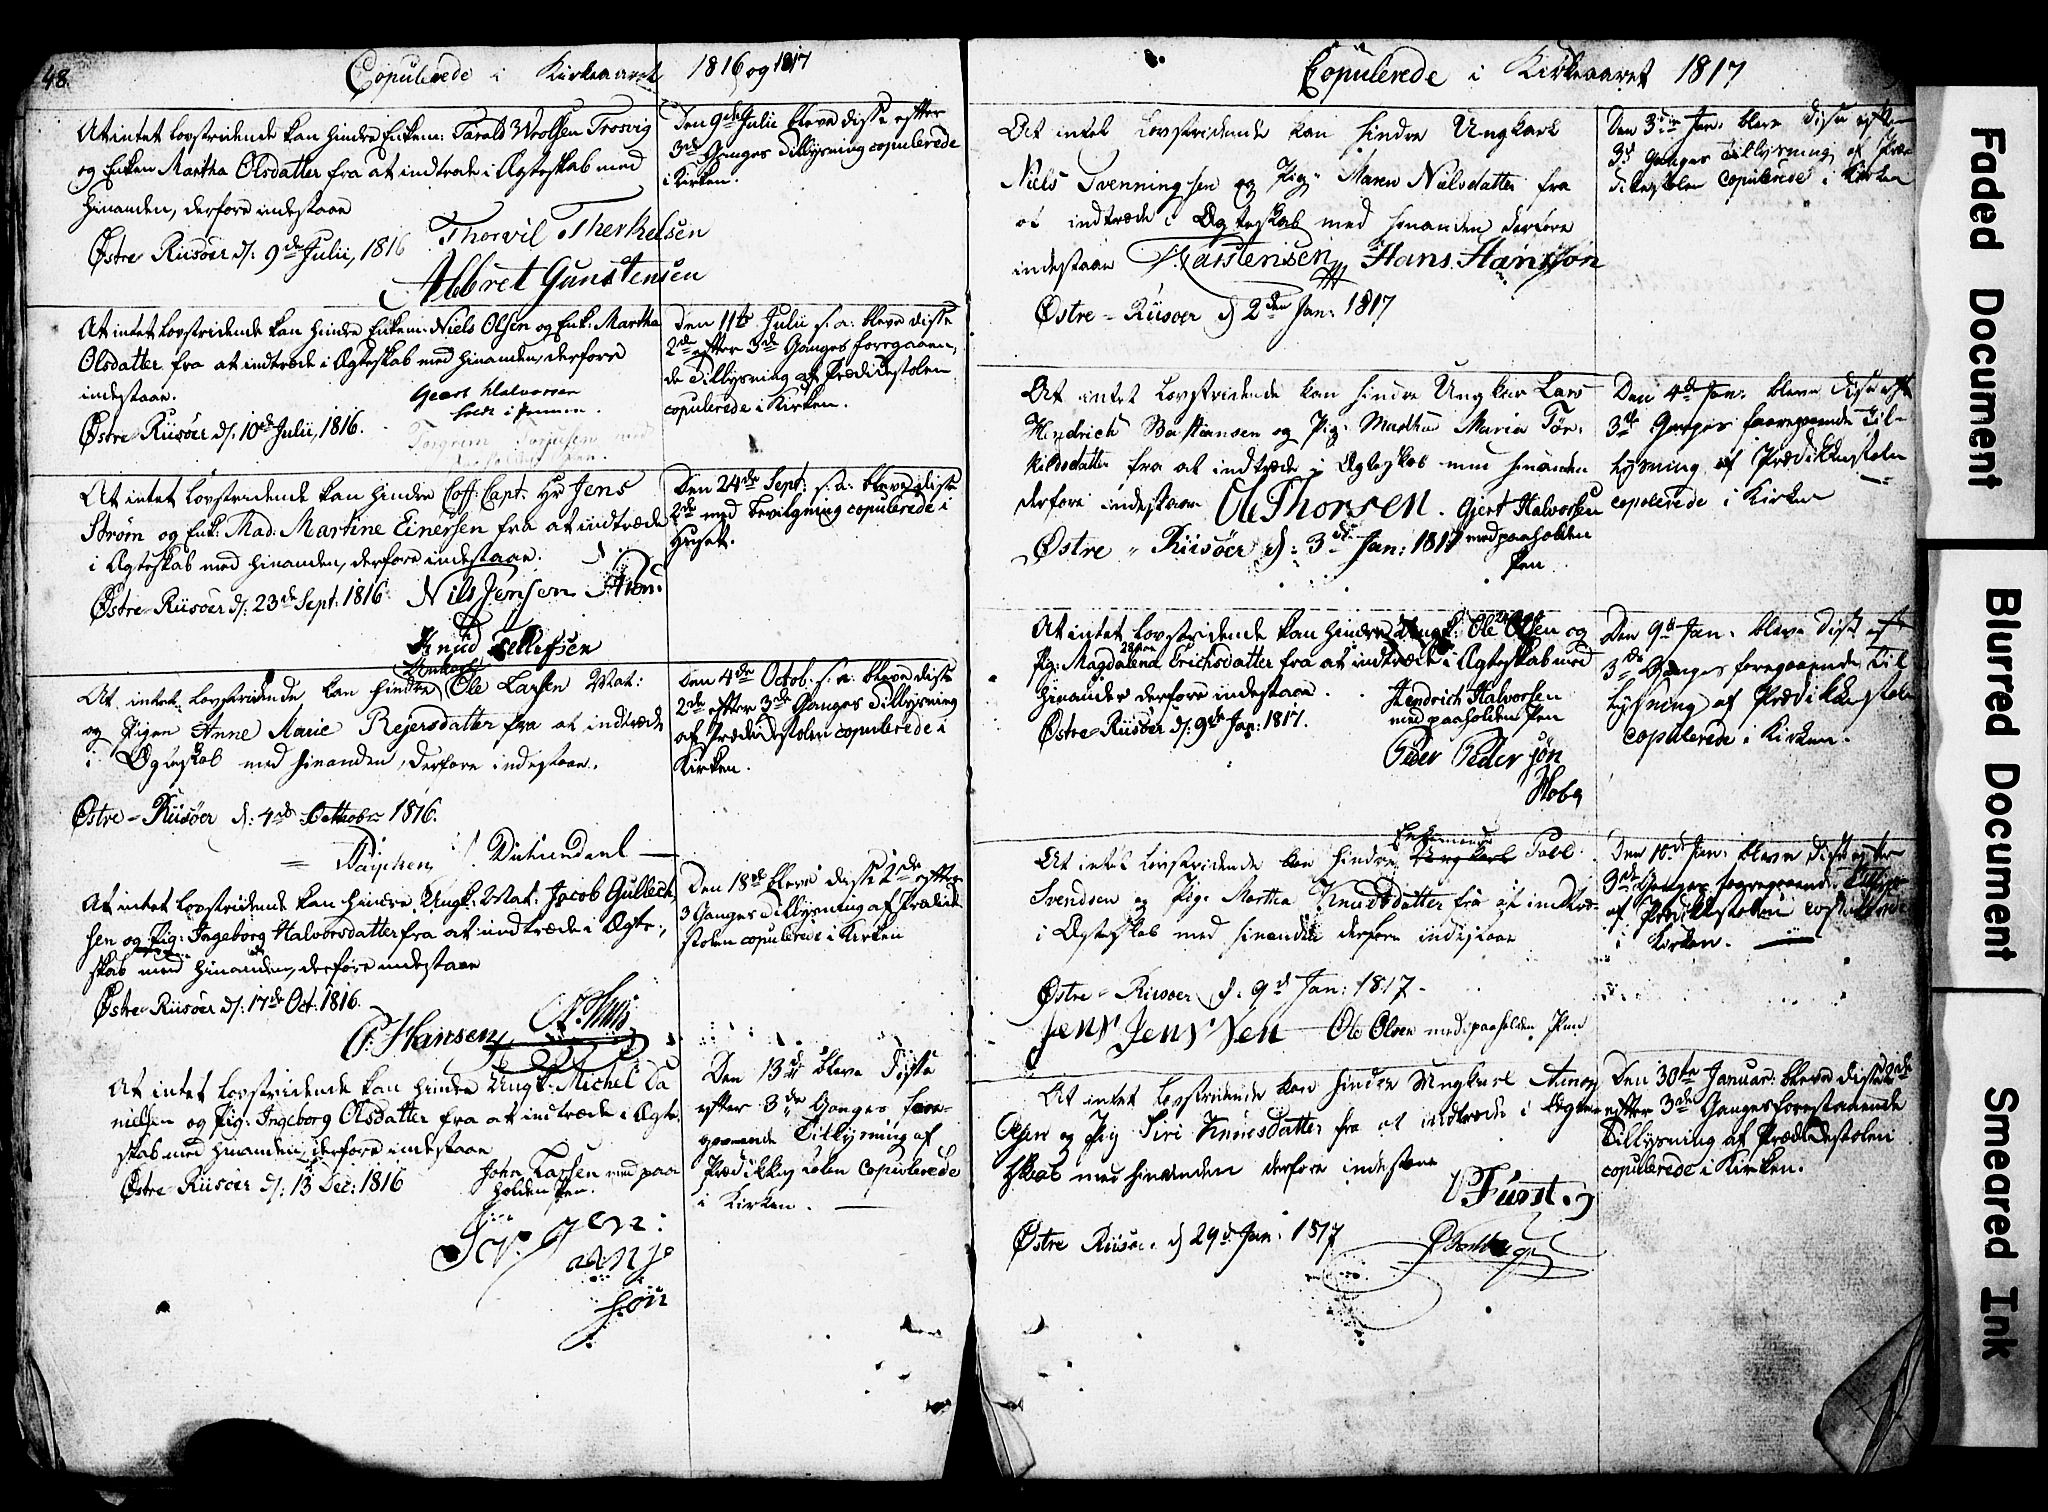 48.
Copulerede i Kirkeaaret 1816 og 1817
At intet lovstridende kan hindre Enkem: Tarald Wrolsen Trosvig
og Enken Martha Olsdatter fra at indtræde i Ægteskab med
hinanden, derfore indestaae
Østre-Riisøer d: 9de Julii, 1816 Thorvil Therkelsen
Abbret Gunstensen
Den 9de Julii bleve disse efter
3de Ganges Tillysning copulerede
i Kirken.
At intet lovstridende kan hindre Enkem: Niels Olsen og Enk: Martha
Olsdatter fra at indtræde i Ægteskab med hinanden, derfore
indestaae.
Geert Halvorsen
holdt i Pennen.
Østre-Riisøer d: 10de Julii, 1816.
Den 11te Julii s. a. bleve disse
2de efter 3de Ganges foregaaen-
de Tillysning af Prædikestolen
copulerede i Kirken.
At intet lovstridende kan hindre Coff: Capt: Hr Jens
Strøm og Enk: Mad: Martine Einersen fra at indtræde
i Ægteskab med hinanden, derfore indestaae.
Østre-Riisøer d: 23de Sept: 1816 Nils Jensen
Knud Tellefsen
Den 24de Sept: s. a. bleve disse
2de med Bevilgning copulerede i
Huset.
At intet lovstridende kan hindre Ole Larsen Mat:
og Pigen Anne Marie Rejersdatter fra at indtræde
i Ægteskab med hinanden, derfore indestaae.
Østre-Riisøer d: 4de Octhober 1816.
Den 4de Octob: s. a. bleve disse
2de efter 3de Ganges Tillysning
af Prædikestolen copulerede i
Kirken.
At intet lovstridende kan hindre Ungk: Mat: Jacob Gullech
sen og Pig: Ingeborg Halvorsdatter fra at indtræde i Ægte-
skab med hinanden, derfore indestaae
Østre-Riisøer d: 17de Oct: 1816.
P. Hansen
Den 18de bleve disse 2de efter
3 Ganges Tillysning af Prædike
stolen copulerede i Kirken
At intet lovstridende kan hindre Ungk: Michel Da
nielsen og Pig: Ingeborg Olsdatter fra at indtræde i Ægte
skab med hinanden, derfore indestaae
Østre-Riisøer d: 13 Dec: 1816 Johan Larsen med paa
holden Pen.
Den 13de bleve disse
efter 3de Ganges fore-
gaaende Tillysning af
Prædikkestolen copulerede
i Kirken.
Copulerede i Kirkeaaret 1817
At intet lovstridende kan hindre Ungkarl
Niels Svenningsen og Pig: Maren Nielsdatter fra
at indtræde i Ægteskab med hinanden derfore
indestaae Karstensen Hans Hansøn
Østre-Riisøer d 2den Jan: 1817
Den 3die Jan: bleve disse efter
3d Ganges Tillysning af Præ
dikestolen copulerede i Kirken
At intet lovstridende kan hindre Ungkar Lars
Hendrich Bastiansen og Pig: Marthe Maria Tør-
kildsdatter fra at indtræde i Ægteskab med hinanden
derfore indestaae Ole Thorsen. Gjert Halvorsen
med paaholden
Pen
Østre-Riisøer d: 3die Jan: 1817
Den 4de Jan: bleve disse eft
3de Ganges foregaaende Til-
lysning af Prædikkestolen
copulerede i Kirken
At intet lovstridende kan hindre Ungk: Ole Olsen og
Pig: Magdalena Erichsdatter fra at indtræde i Ægteskab med
hinanden derfore indestaae. Hendrich Halvorsen
med paaholden Pen
Østre-Riisøer d: 9de Jan: 1817.
Peder Pedersøn
Hobæ
Den 9d Jan: bleve disse eft
3de Ganges foregaaende Til
lysning af Prædikkestolen
copulerede i Kirken.
Enkemand
At intet lovstridende kan hindre Ungkarl Tall
Svendsen og Pig: Martha Knudsdatter fra at indtræ-
i Ægteskab med hinanden derfore indestaae
Østre-Riisøer d: 9d Jan: 1817.
Jens Jensøen Ole Olsen med paaholden Pen
Den 10d Jan: bleve disse efter
3de Ganges foregaaende Tillysn
af Prædikkestolen copulerede
i Kirken.
At intet lovstridende kan hindre Ungkarl
Olsen og Pig Siri Knudsdatter fra at indtræde i Ægte
skab med hinanden derfore indestaae
Fürst
Østre Riisøe. d 29de Jan: 1817
Den 30te Januar: bleve disse 2de
efter 3de Ganges forestaaende
Tillysning af Prædikestolen
copulerede i Kirken.
Faded Document
Blurred Document
Smeared Ink